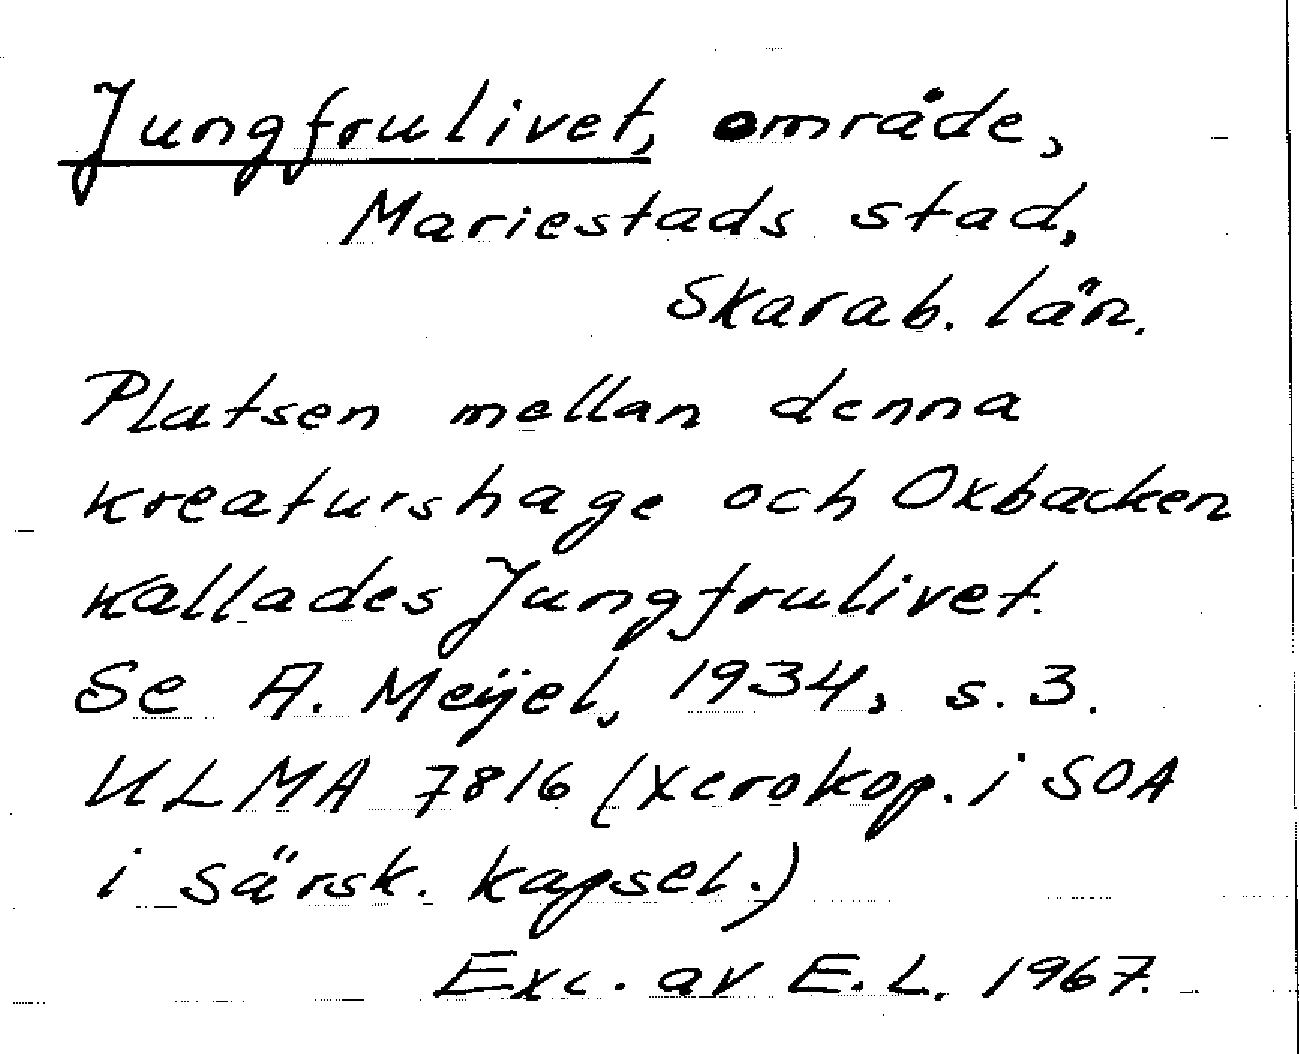 Jungfrulivet, område,
Mariestads stad,
Skarab. län.
Platsen mellan denna
kreaturshage och Oxbacken
kallades Jungfrulivet.
Se A. Meijel, 1934, s. 3.
ULMA 7816 (Xerokop. i SOA
i särsk. kapsel.)
Exc. av E. L. 1967.